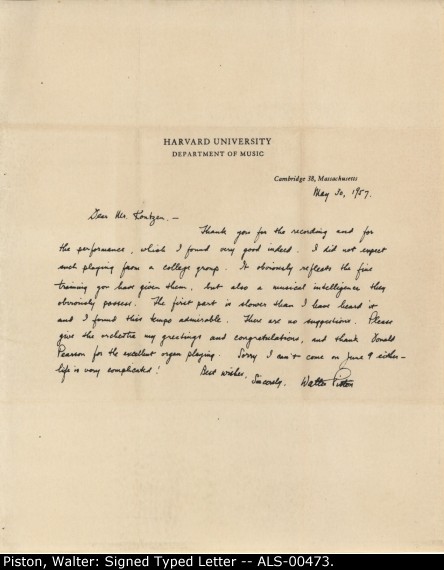 HARVARD UNIVERSITY
DEPARTMENT OF MUSIC
Cambridge 38, Massachusetts
May 30, 1957.
Dear Mr. Kontzen. —
Thank you for the recording and for
the performance, which I found very good indeed. I did not expect
such playing from a college group. It obviously reflects the fine
training you have given them, but also a musical intelligence they
obviously possess. The first part is slower than I have heard it
and I found this tempo admirable. There are no suggestions. Please
give the orchestra my greetings and congratulations, and thank Donald
Pearson for the excellent organ playing. Sorry I can't come on June 9 either —
life is very complicated!
Best wishes,
Sincerely,
Walter Piston
Piston, Walter: Signed Typed Letter -- ALS-00473.